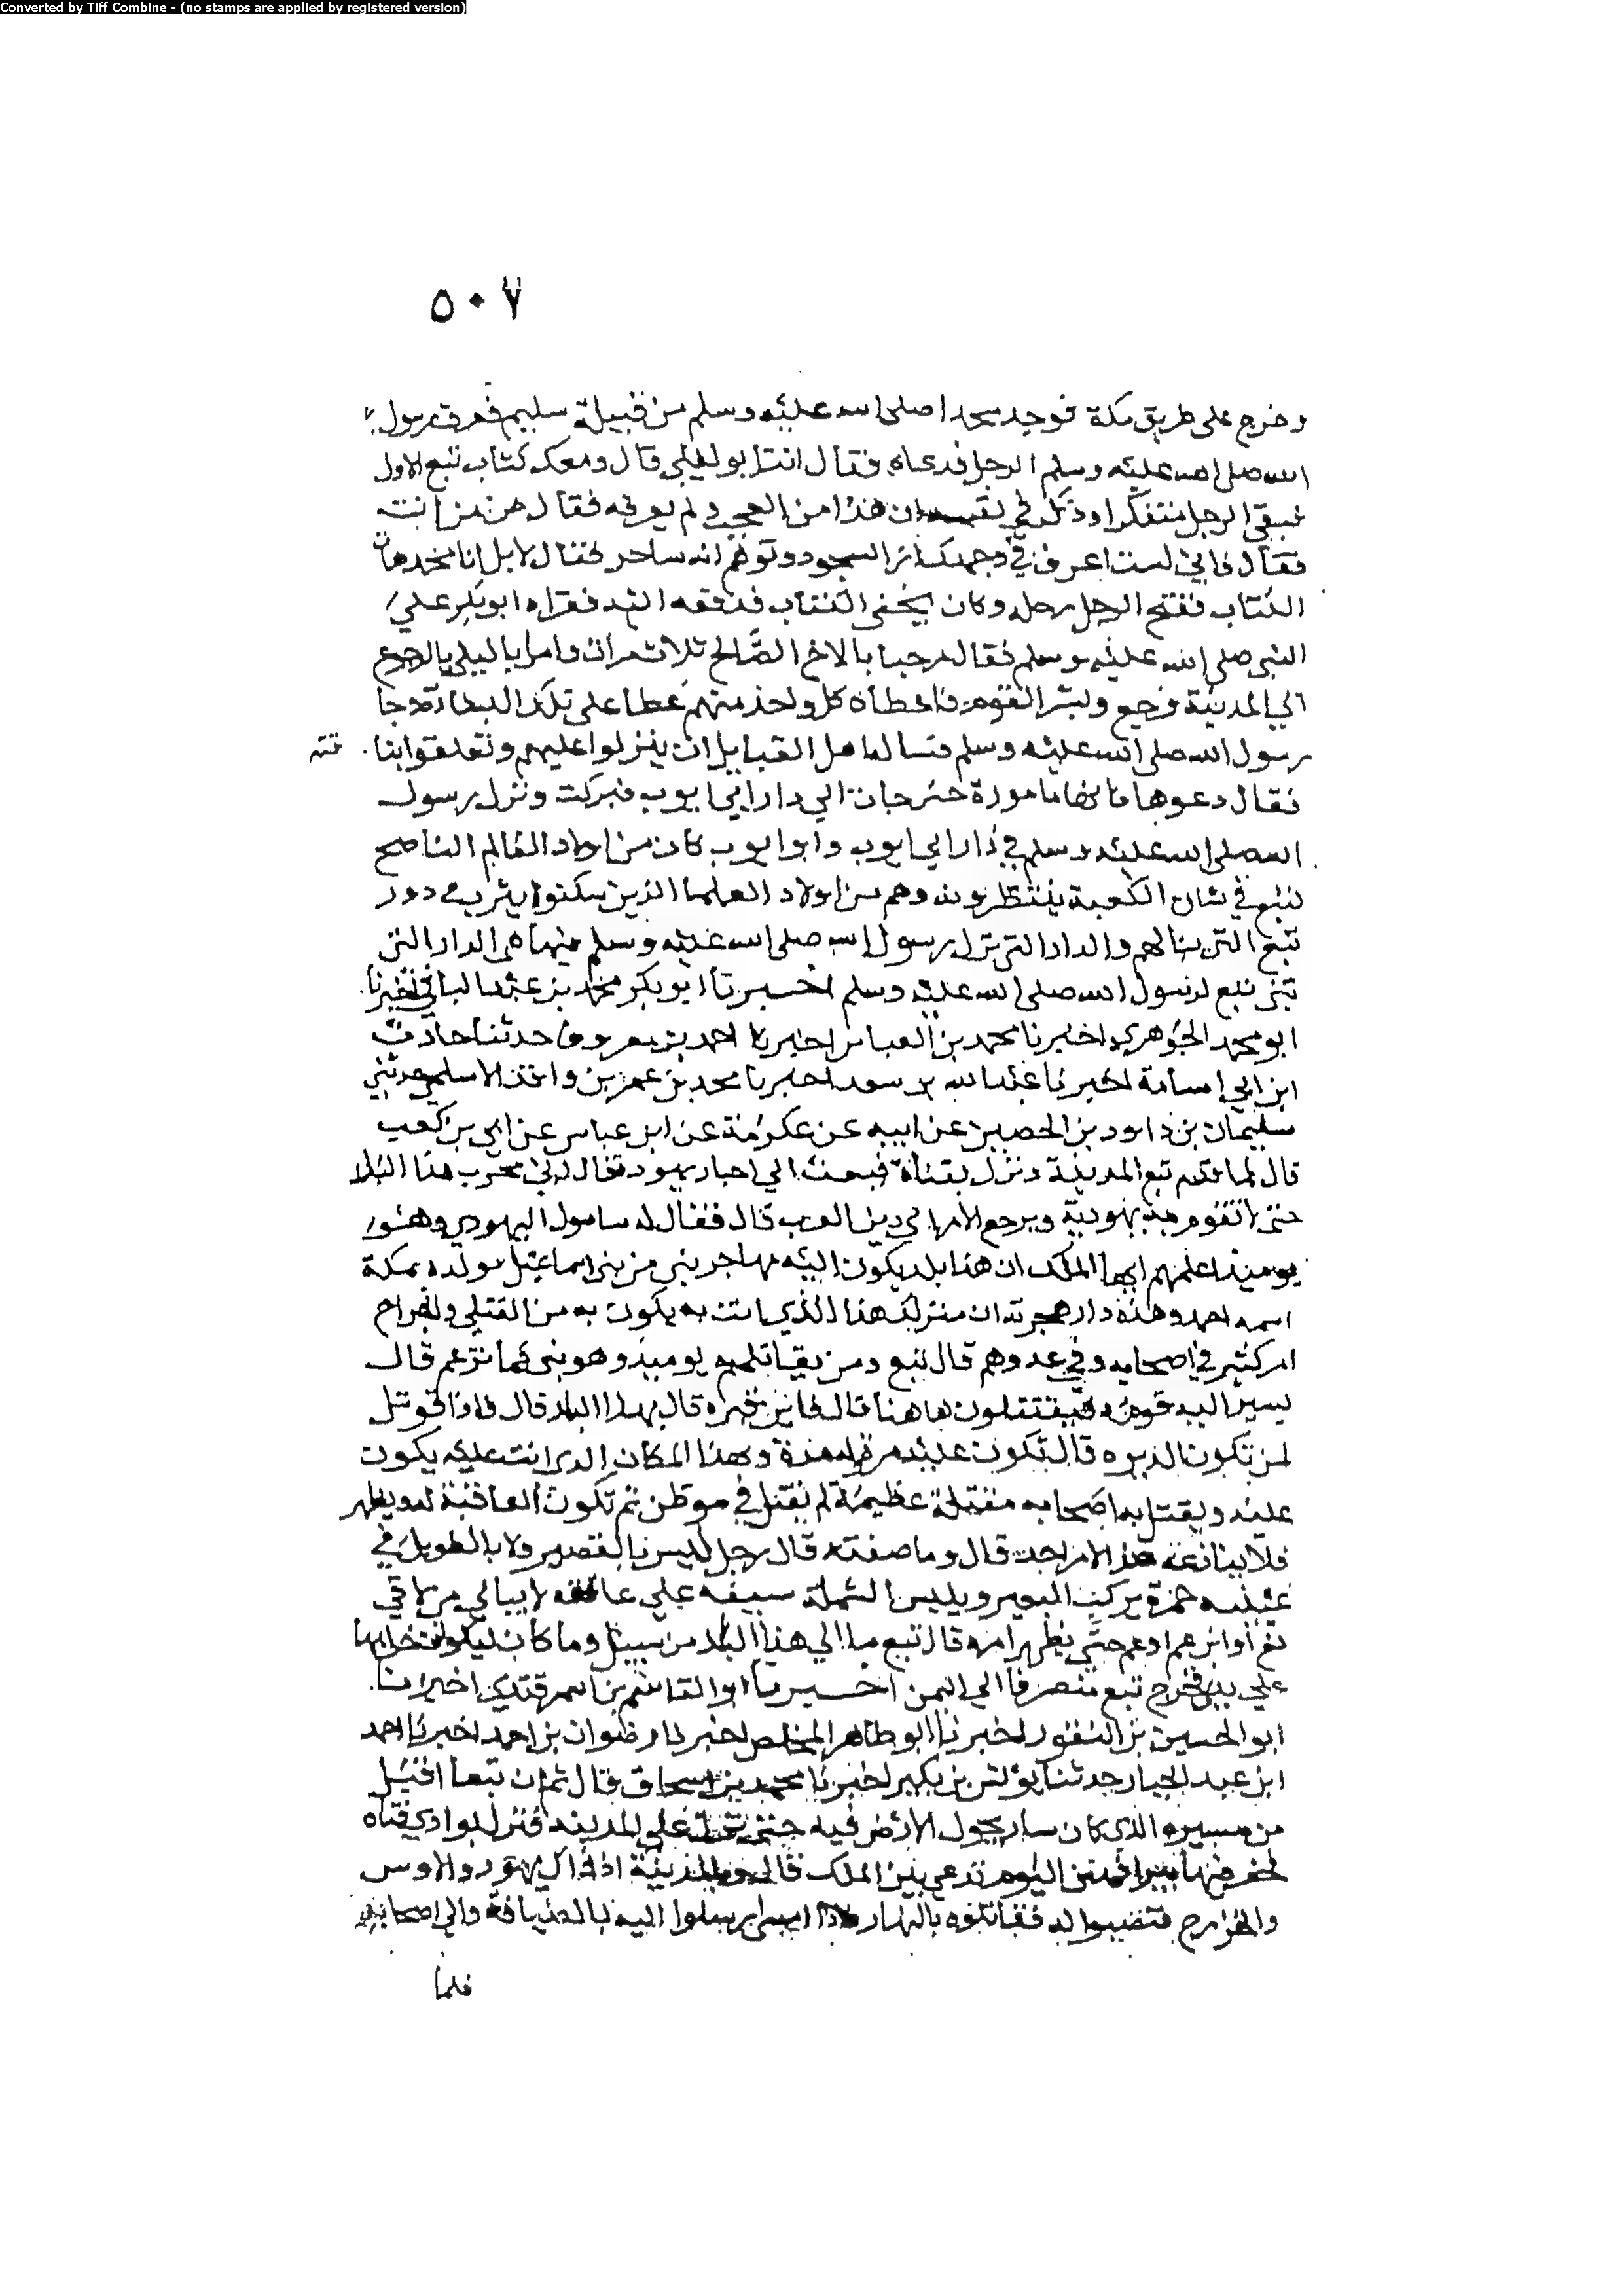 Converted by Tiff Combine - (no stamps are applied by registered version)
٥٠٧
وخرج على طريق مكة فوجد محمدا صلى الله عليه وسلم من قبيلة سليم فعرف رسول
الله صلى الله عليه وسلم الرجل فدعاه فقال انت ابو ليلى قال ومعك كتاب تبع الاول
فبقى الرجل متفكرا وذكر في نفسه ان هذا من العجب ولم يعرفه فقال من انت
فقال فاني لست اعرف في وجهك اثر السجود وتوهم انه ساحر فقال لا بل انا محمد هات
الكتاب ففتح الرجل رحله وكان يخفى الكتاب فدفعه اليه فقراه ابو بكر علي
النبي صلى الله عليه وسلم فقال مرحبا بالاخ الصالح ثلاث مرات وامر ابا ليلى بالرجوع
الي المدينة فرجع وبشر القوم فاعطاه كل واحد منهم عطا على تلك البشارة وجا
رسول الله صلى الله عليه وسلم فساله اهل القبايل ان ينزلوا عليهم وتعلقوا بنا
قته
فقال دعوها فانها مامورة حتى جات الي دار ابي ايوب فبركت ونزل رسول
الله صلى الله عليه وسلم في دار ابي ايوب وابو ايوب كان من اولاد العالم الناصح
لتبع في شان الكعبة ينتظرونه وهم من اولاد العلما الذين سكنوا يثرب في دور
تبع التى بنا لهم والدار التى نزل رسول الله صلى الله عليه وسلم فيها هى الدار التى
بنى تبع لرسول الله صلى الله عليه وسلم اخبرنا ابو بكر محمد بن عبد الباقي اخبرنا
ابو محمد الجوهري اخبرنا محمد بن العباس اخبرنا احمد بن معروف حدثنا حارث
ابن ابي اسامة اخبرنا محمد بن سعد اخبرنا محمد بن عمر بن واقد الاسلمي حدثني
سليمان بن داود بن الحصين عن ابيه عن عكرمة عن ابن عباس عن ابي بن كعب
قال لما قدم تبع المدينة ونزل بقناة فبعث الي احبار يهود فقال اني مخرب هذا البلد
حتى لا تقوم به يهودية ويرجع الامر الي دين العرب قال فقال له سامول اليهودي وهو
يوميذ اعلمهم ايها الملك ان هذا بلد يكون اليه مهاجر نبي من بني اسماعيل مولده بمكة
اسمه احمد وهذه دار هجرته ان منزلك هذا الذي انت به يكون به من القتلي والجراح
امر كثير في اصحابه وفي عدوهم قال تبع ومن يقاتله يوميذ وهو نبي كما تزعم قال
يسير اليه قومه فيقتتلون هاهنا قال فاين قبره قال بهذا البلد قال فاذا قوتل
لمن تكون الدبره قال تكون عليه مرة وله مرة وبهذا المكان الذي انت عليه يكون
عليه ويقتل به اصحابه مقتلة عظيمة لم تقتل في موطن ثم تكون العاقبة له ويظهر
فلا ينازعه هذا الامر احد قال وما صفته قال رجل ليس بالقصير ولا بالطويل في
عينيه حمرة يركب البعير ويلبس الشملة سيفه علي عاتقه لا يبالي من لاقي
اخ او ابن عم او عم حتى يظهر امره قال تبع ما الي هذا البلد من سبيل وما كان ليكون خرابها
علي يدي فخرج تبع منصرفا الي اليمن اخبرنا ابو القاسم بن السمرقندي اخبرنا
ابو الحسين بن النقور اخبرنا ابو طاهر المخلص اخبرنا رضوان بن احمد اخبرنا احمد
ابن عبد الجبار حدثنا يونس بن بكير اخبرنا محمد بن اسحاق قال ثم ان تبعا اقبل
من مسيره الذي كان سار يجول الارض فيه حتى نزل على المدينه فنزل بوادي قناه
فحفر فيها بيرا فهي اليوم تدعى بير الملك قال وبالمدينة اذ ذاك يهود والاوس
والخزرج فنصبوا له فقاتلوه بالنهار فاذا امسى ارسلوا اليه بالضيافة والي اصحابه
فلما